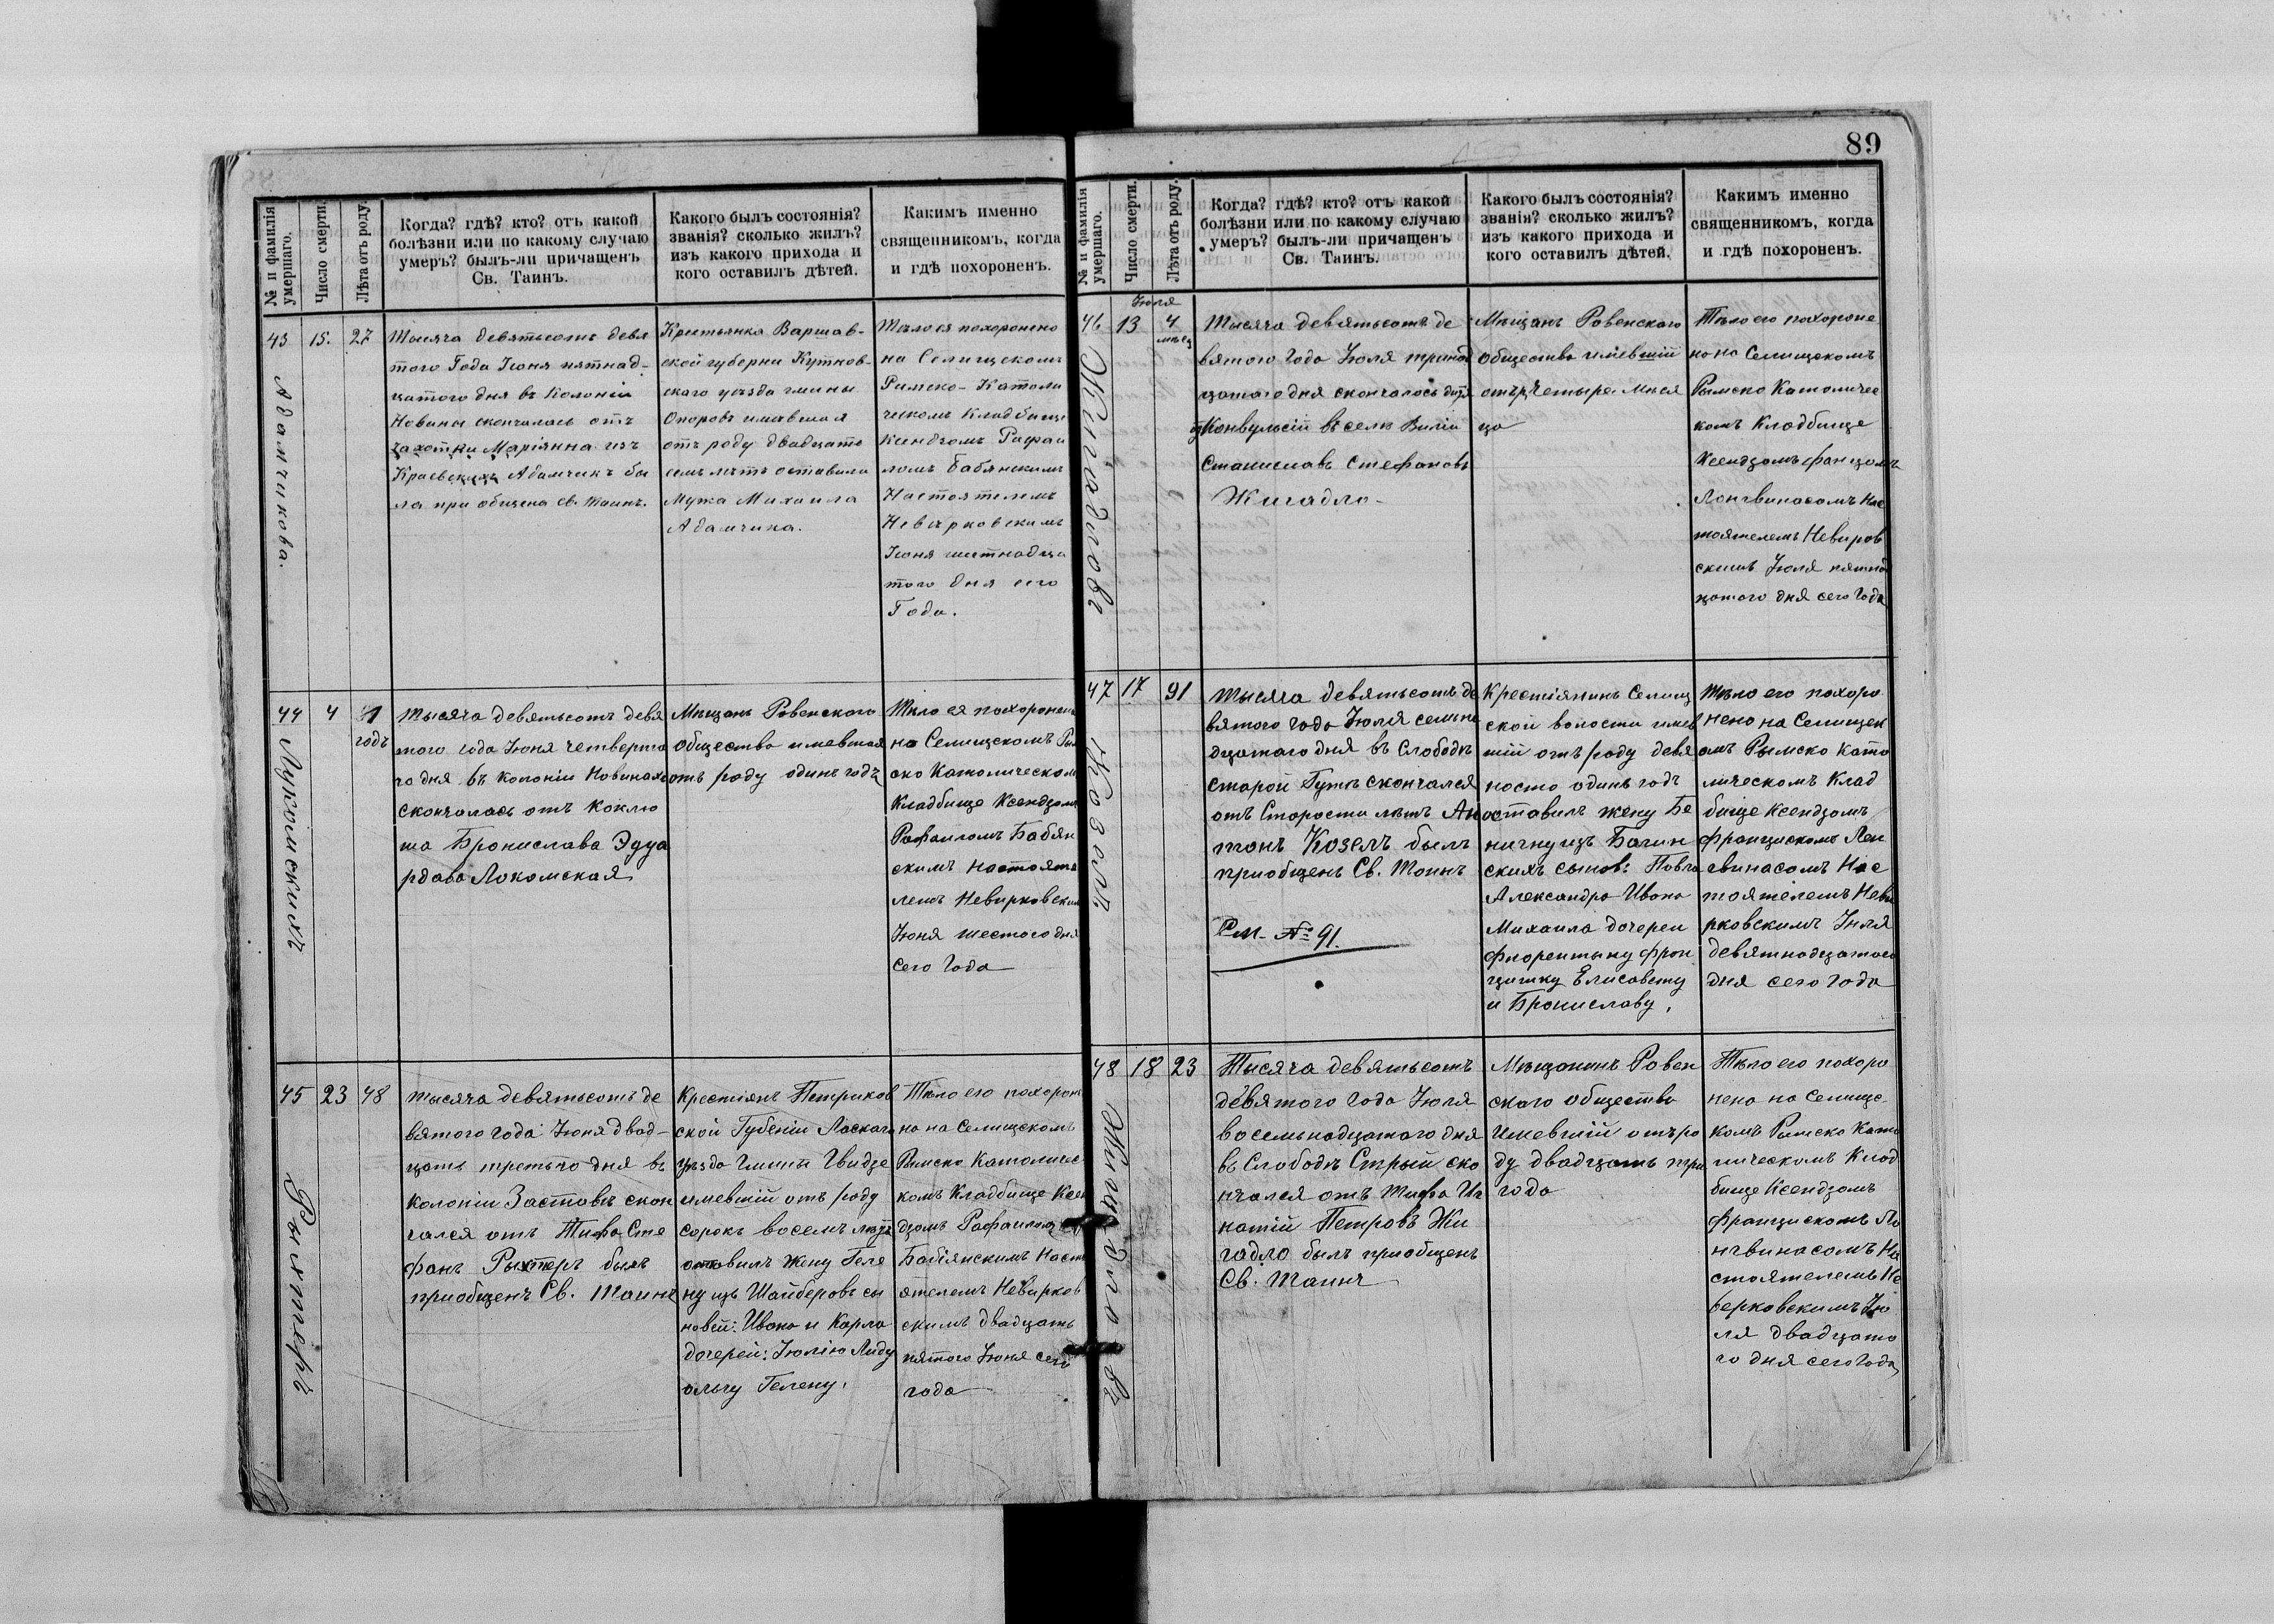 89
№ и фамилія умершаго.
Число смерти.
Лѣта отъ роду.
Когда? гдѣ? кто? отъ какой
болѣзни или по какому случаю
умеръ? былъ-ли причащенъ
Св. Таинъ.
Какого былъ состоянія?
званія? сколько жилъ?
изъ какого прихода и
кого оставилъ дѣтей.
Какимъ именно
священникомъ, когда
и гдѣ похороненъ.
43
Адамчикова.
15.
27
Тысяча девятьсотъ девя
того Года Іюня пятнад-
цатого дня въ Колоніи
Новины скончалась отъ
чахотки Маріянна изъ
Краевскихъ Адамчикъ бы
ла при общена св. Таинъ.
Крестьянка Варшав-
ской губерни Кутнов-
ского уѣзда гмины
Опоровъ имѣвшая
отъ роду двадцать
семь лѣтъ оставила
Мужа Михаила
Адамчика.
Тѣло ея похоронено
на Селищскомъ
Римско-Католи
ческомъ Кладбище
Ксендзомъ Рафаи
ломъ Бабянскимъ
Настоятелемъ
Невирковскимъ
Іюня шестнадца
того дня сего
Года.
44
Лукомскихъ
4
1
годъ
Тысяча девятьсотъ девя
того года Іюня четверто
го дня въ колоніи Новинахъ
скончалась отъ коклю
ша Бронислава Эдуа
рдова Локомская
Мѣщанъ Ровенского
общества имевшая
отъ роду одинъ годъ
Тѣло ея похоронено
на Селищскомъ Ры
ско Католическом
Кладбище Ксендзом
Рафаиломъ Бабян
скимъ Настояте
лемъ Невирковским
Іюня шестого дня
сего Года
45
Рыхтеръ
23
48
Тысяча девятьсотъ де
вятого года Іюня двад-
цать третьго дня въ
колоніи Заставъ скон
чался отъ Тифа Сте
фанъ Рыхтеръ былъ
приобщенъ Св. Таинъ
Крестіянъ Петриков
ской Губеніи Ласкаго
Уѣзда Гмины Гвидзе
имевшій отъ роду
сорокъ восемъ лѣтъ
оставилъ жену Геле
ну изъ Шайберовъ сы
новей: Ивана и Карла
дочерей: Іюлію Лиду
ольгу Гелену.
Тѣло его похорон
но на Селищскомъ
Рымско Католичес
комъ Кладбище Ксен
дзомъ Рафаиломъ
Бабіянскимъ Насто
ятелемъ Невирков
скимъ двадцать
пятого Іюня сего
года
№ и фамилія умершаго.
Число смерти.
Лѣта отъ роду.
Когда? гдѣ? кто? отъ какой
болѣзни или по какому случаю
умеръ? былъ-ли причащенъ
Св. Таинъ.
Какого былъ состоянія?
званія? сколько жилъ?
изъ какого прихода и
кого оставилъ дѣтей.
Какимъ именно
священникомъ, когда
и гдѣ похороненъ.
Іюля
46
Жигадловъ
13
4
мѣсц
Тысяча девятьсотъ де
вятого года Іюля тринад
цатого дня скончалось дитя
Конвульсій въ селѣ Виліи
Станиславъ Стефановъ
Жигадло-
Мѣщанъ Ровенского
общества имевшій
отъ Четыре Мѣся
ца
Тѣло его похороне
но на Селищскомъ
Рымско Католичес
комъ Кладбище
Ксендзомъ францомъ
Лонгвинасомъ Нас
тоятелемъ Невиров
скимъ Іюля пятна
цатого дня сего Года
47
Козелъ
17
91
Тысяча девятьсотъ де
вятого года Іюля семна
дцатаго дня въ Слободѣ
старой Гутѣ скончался
отъ Старости лѣтъ Ан
тонъ Козелъ былъ
приобщенъ Св. Таинъ
Рм. № 91.
Крестіянинъ Селищ
ской волости имев
шій отъ роду девя
носто одинъ годъ
оставилъ жену Бе
ничну изъ Багин
скихъ сынов: Павла
Александра Ивана
Михаила дочереи
Флорентыну фран
цишку Елисавету
и Брониславу.
Тѣло его похоро
нено на Селищск
омъ Рымско Като
лическомъ Клад
бище Ксендзомъ
францискомъ Лон
свинасомъ Нас
тоятелемъ Неви
рковскимъ Іюля
девятнадцатого
дня сего года
48
Жигадловъ
18
23
Тысяча девятьсотъ
девятого года Іюля
восемьнадцатого дня
въ Слободѣ Стрый ско
нчался отъ тифа Иг
натій Петровъ Жи
гадло былъ приобщенъ
Св. Таинъ
Мѣщанинъ Ровен
скаго общества
Имевшій отъ ро
ду двадцать три
года
Тѣло его похоро
нено на Селищс-
комъ Рымско Като
лическомъ Клад
бище Ксендзомъ
францискомъ Ло
нгвинасомъ На
стоятелемъ Не
верковскимъ Ію
ля двадцато
го дня сего Года